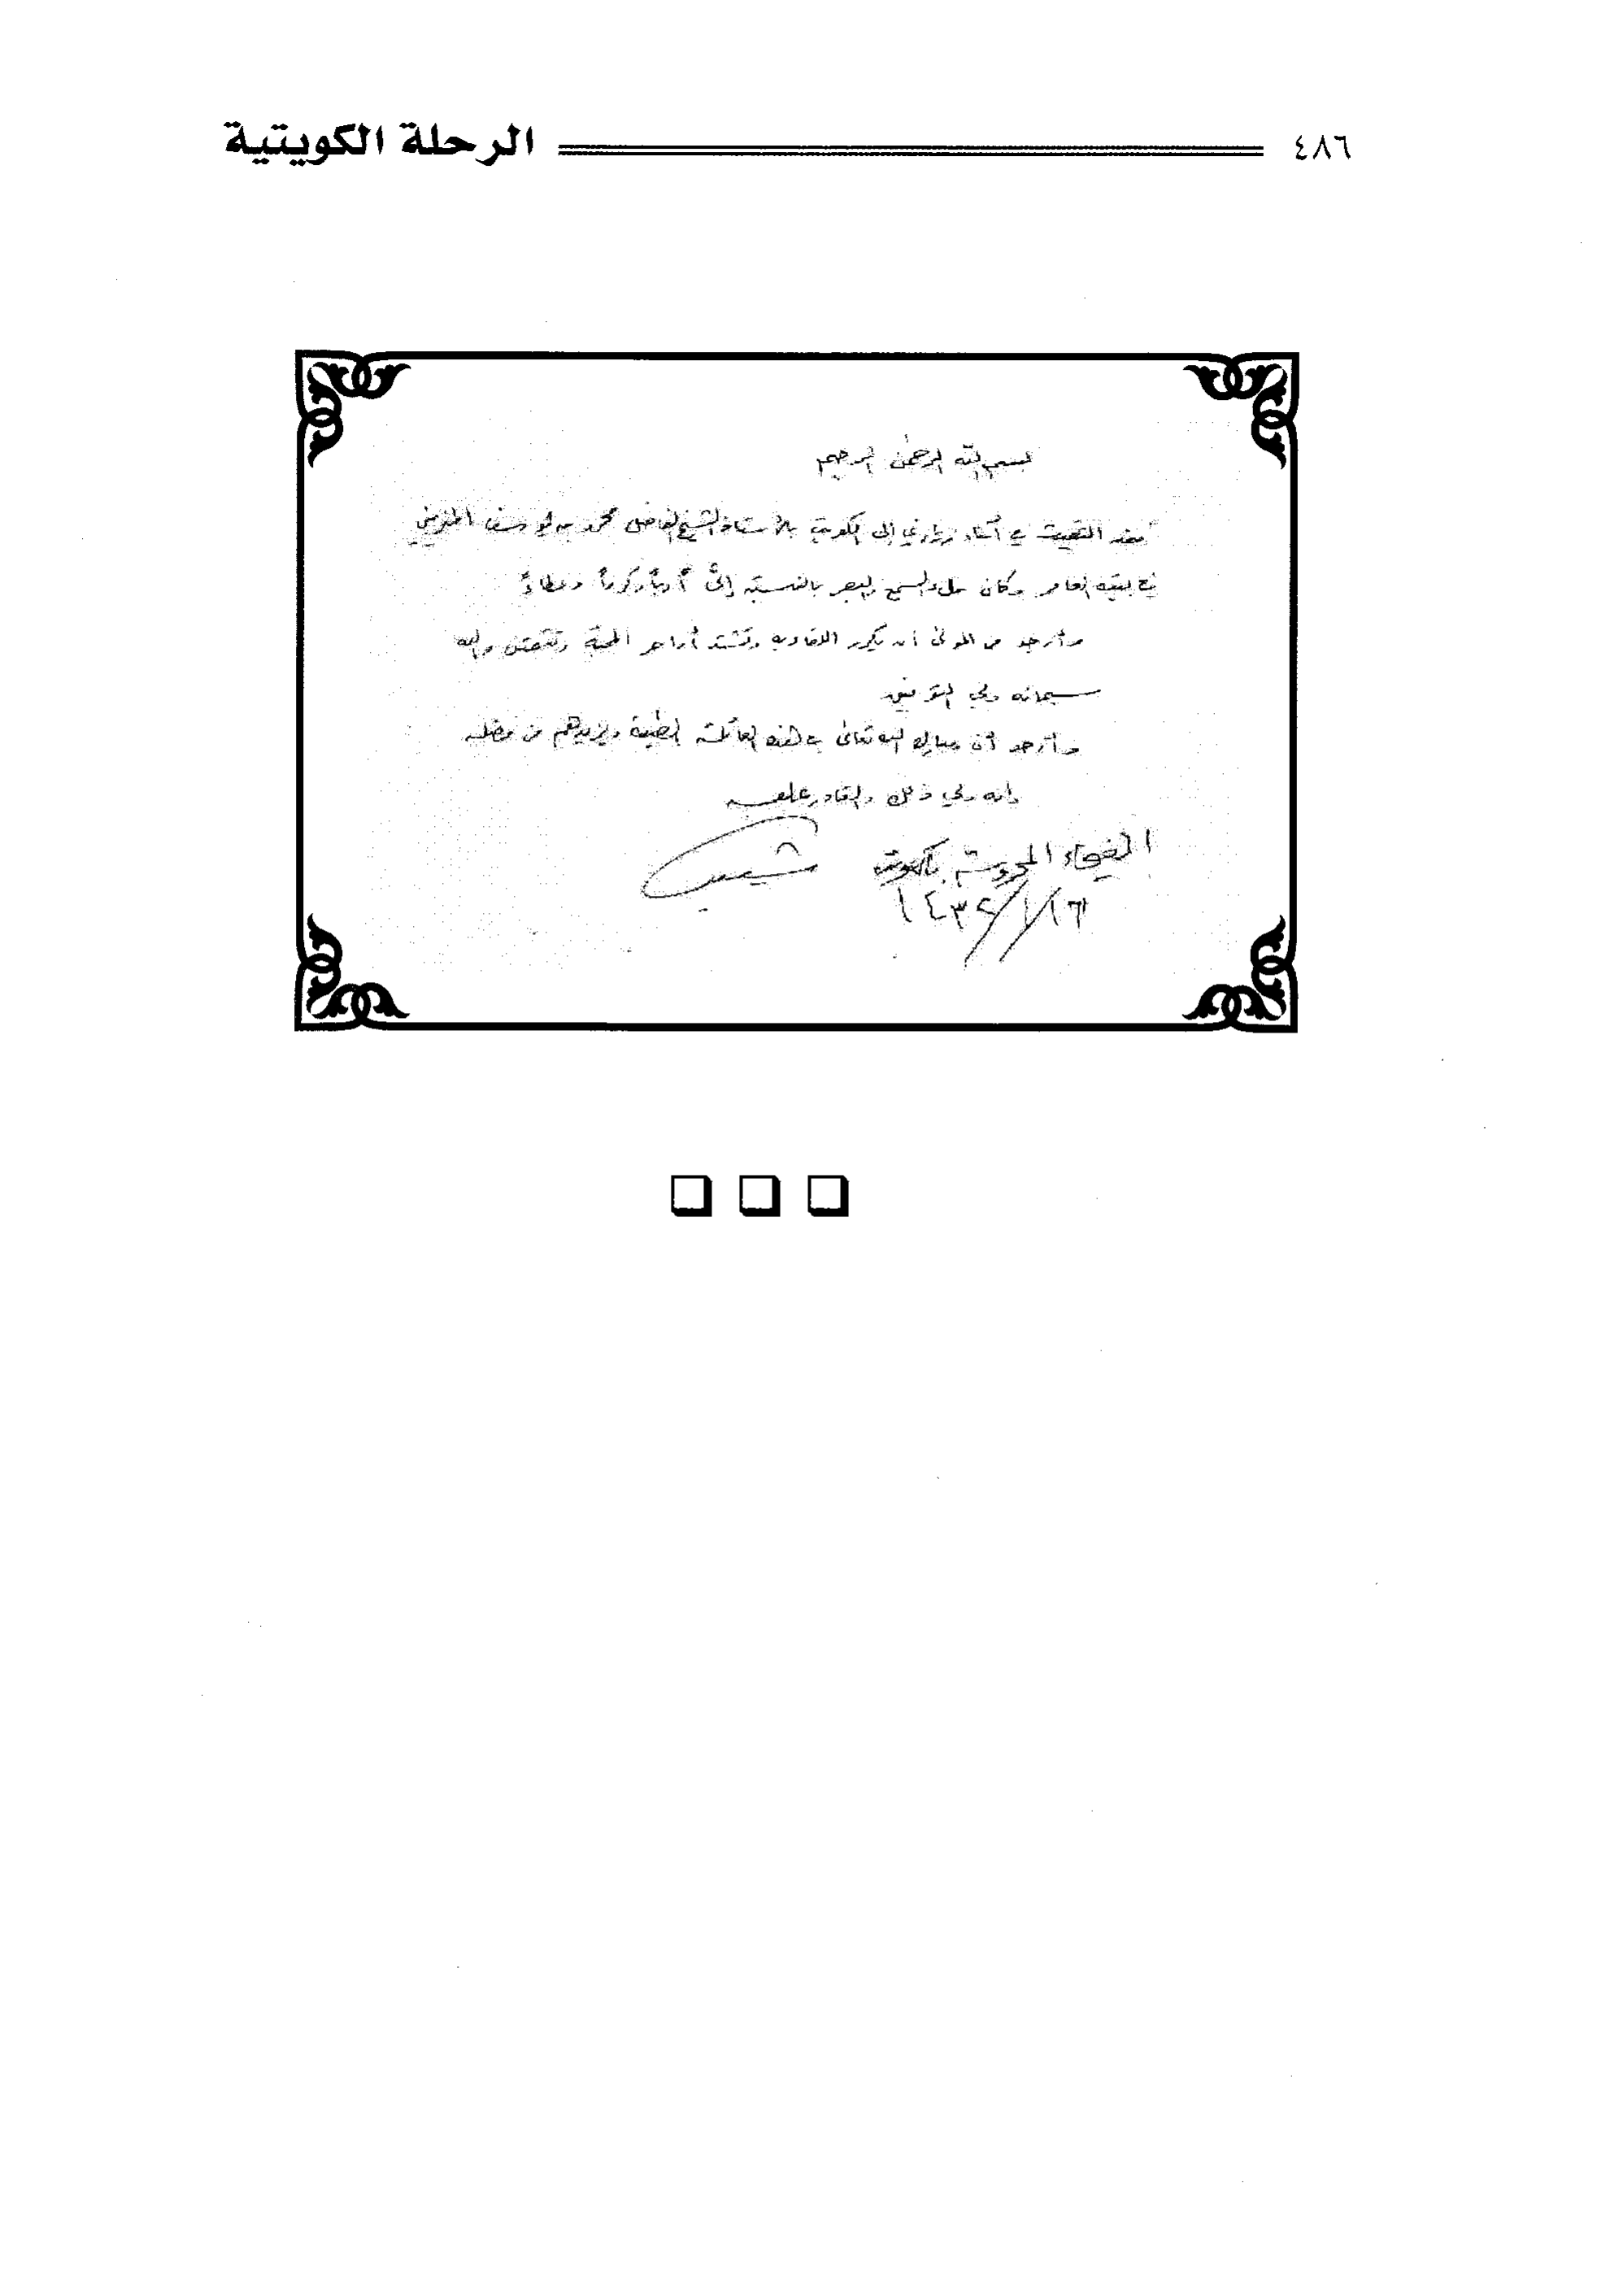 ٤٨٦ الرحلة الكويتية
بسم الله الرحمن الرحيم
فقد التقيت في أثناء زيارتي إلى الكويت بالأستاذ الشيخ الفاضل محمد بن يوسف المزيني
في بيته العامر وكان ملء السمع والبصر بالنسبة إليَّ أدباً وكرماً وعطاءً
وأرجو من المولى أن يكرر اللقاء به وتشتد أواصر المحبة والله
سبحانه ولي التوفيق
وأرجو أن يبارك الله تعالى في هذه العائلة الطيبة ويزيدهم من فضله
إنه ولي ذلك والقادر عليه
الفيحاء المحروسة بالكويت
١٤٣٢/١/١٦